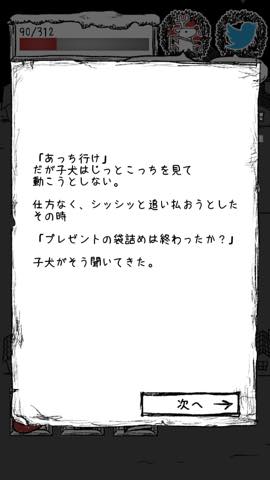 90/312
「あっち行け」
だが子犬はじっとこっちを見て
動こうとしない。
仕方なく、シッシッと追い払おうとした
その時
「プレゼントの袋詰めは終わったか？」
子犬がそう聞いてきた。
次へ